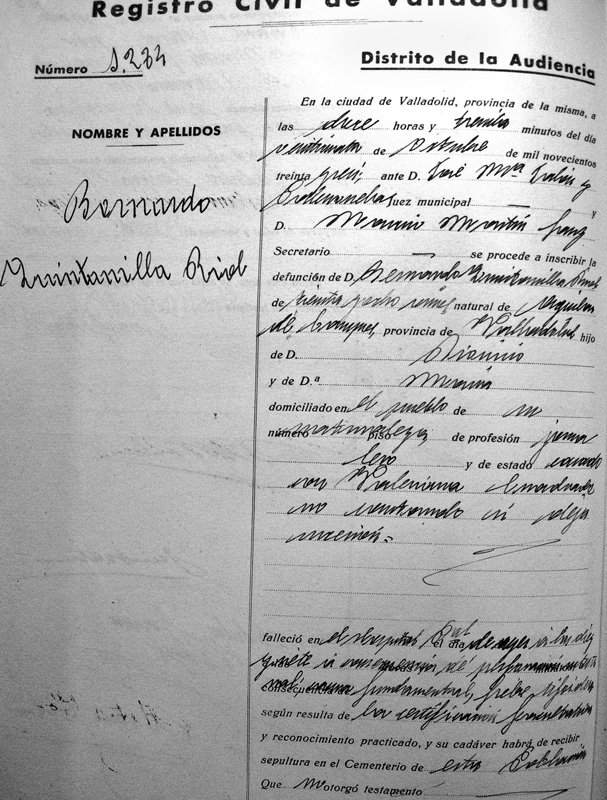 Registro Civil de Valladolid
Número 1.234
Distrito de la Audiencia
NOMBRE Y APELLIDOS
Bernardo
Quintanilla Riol
En la ciudad de Valladolid, provincia de la misma, a
las doce horas y treinta minutos del día
de Octubre de mil novecientos
treinta y tres, ante D. José Mª
Juez municipal y
D. Mauro Martín Sanz
Secretario se procede a inscribir la
defunción de D. Bernardo Quintanilla Riol
de treinta y natural de
de Campos, provincia de Valladolid hijo
de D. Dionisio
y de D.ª María
domiciliado en el pueblo de su
número naturaleza piso de profesión jorna
lero y de estado casado
con Valeriana
no constando si deja
sucesión.=
falleció en el Hospital el día de ayer a las diez
y siete a consecuencia de perforación intesti
nal, causa fundamental, fiebre tifoidea
según resulta de la certificación facultativa
y reconocimiento practicado, y su cadáver habrá de recibir
sepultura en el Cementerio de esta Población
Que no otorgó testamento